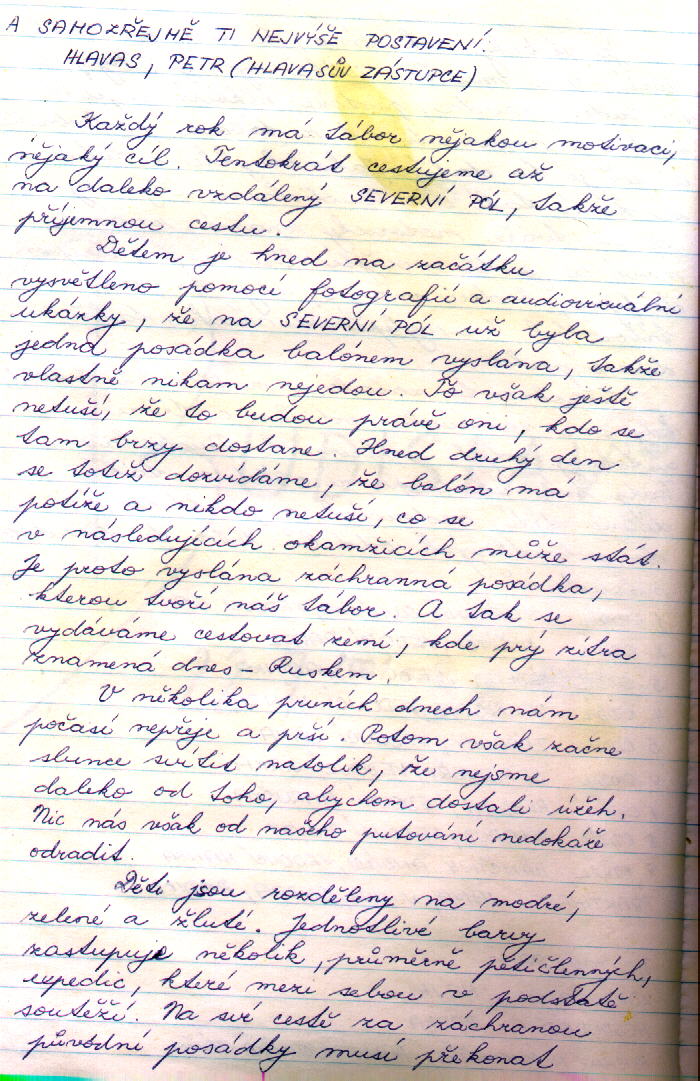 A SAMOZŘEJMĚ TI NEJVÝŠE POSTAVENÍ.
HLAVAS, PETR (HLAVASŮV ZÁSTUPCE)
Každý rok má tábor nějakou motivaci,
nějaký cíl. Tentokrát cestujeme až
na daleko vzdálený SEVERNÍ PÓL, takže
příjemnou cestu.
Dětem je hned na začátku
vysvětleno pomocí fotografií a audiovizuální
ukázky, že na SEVERNÍ PÓL už byla
jedna posádka balónem vyslána, takže
vlastně nikam nejedou. To však ještě
netuší, že to budou právě oni, kdo se
tam brzy dostane. Hned druhý den
se totiž dozvídáme, že balón má
potíže a nikdo netuší, co se
v následujících okamžicích může stát.
Je proto vyslána záchranná posádka,
kterou tvoří náš tábor. A tak se
vydáváme cestovat zemí, kde prý zítra
znamená dnes - Ruskem.
V několika prvních dnech nám
počasí nepřeje a prší. Potom však začne
slunce svítit natolik, že nejsme
daleko od toho, abychom dostali úžeh.
Nic nás však od našeho putování nedokáže
odradit.
Děti jsou rozděleny na modré,
zelené a žluté. Jednotlivé barvy
zastupuje několik, průměrně pětičlenných,
expedic, které mezi sebou v podstatě
soutěží. Na své cestě za záchranou
původní posádky musí překonat